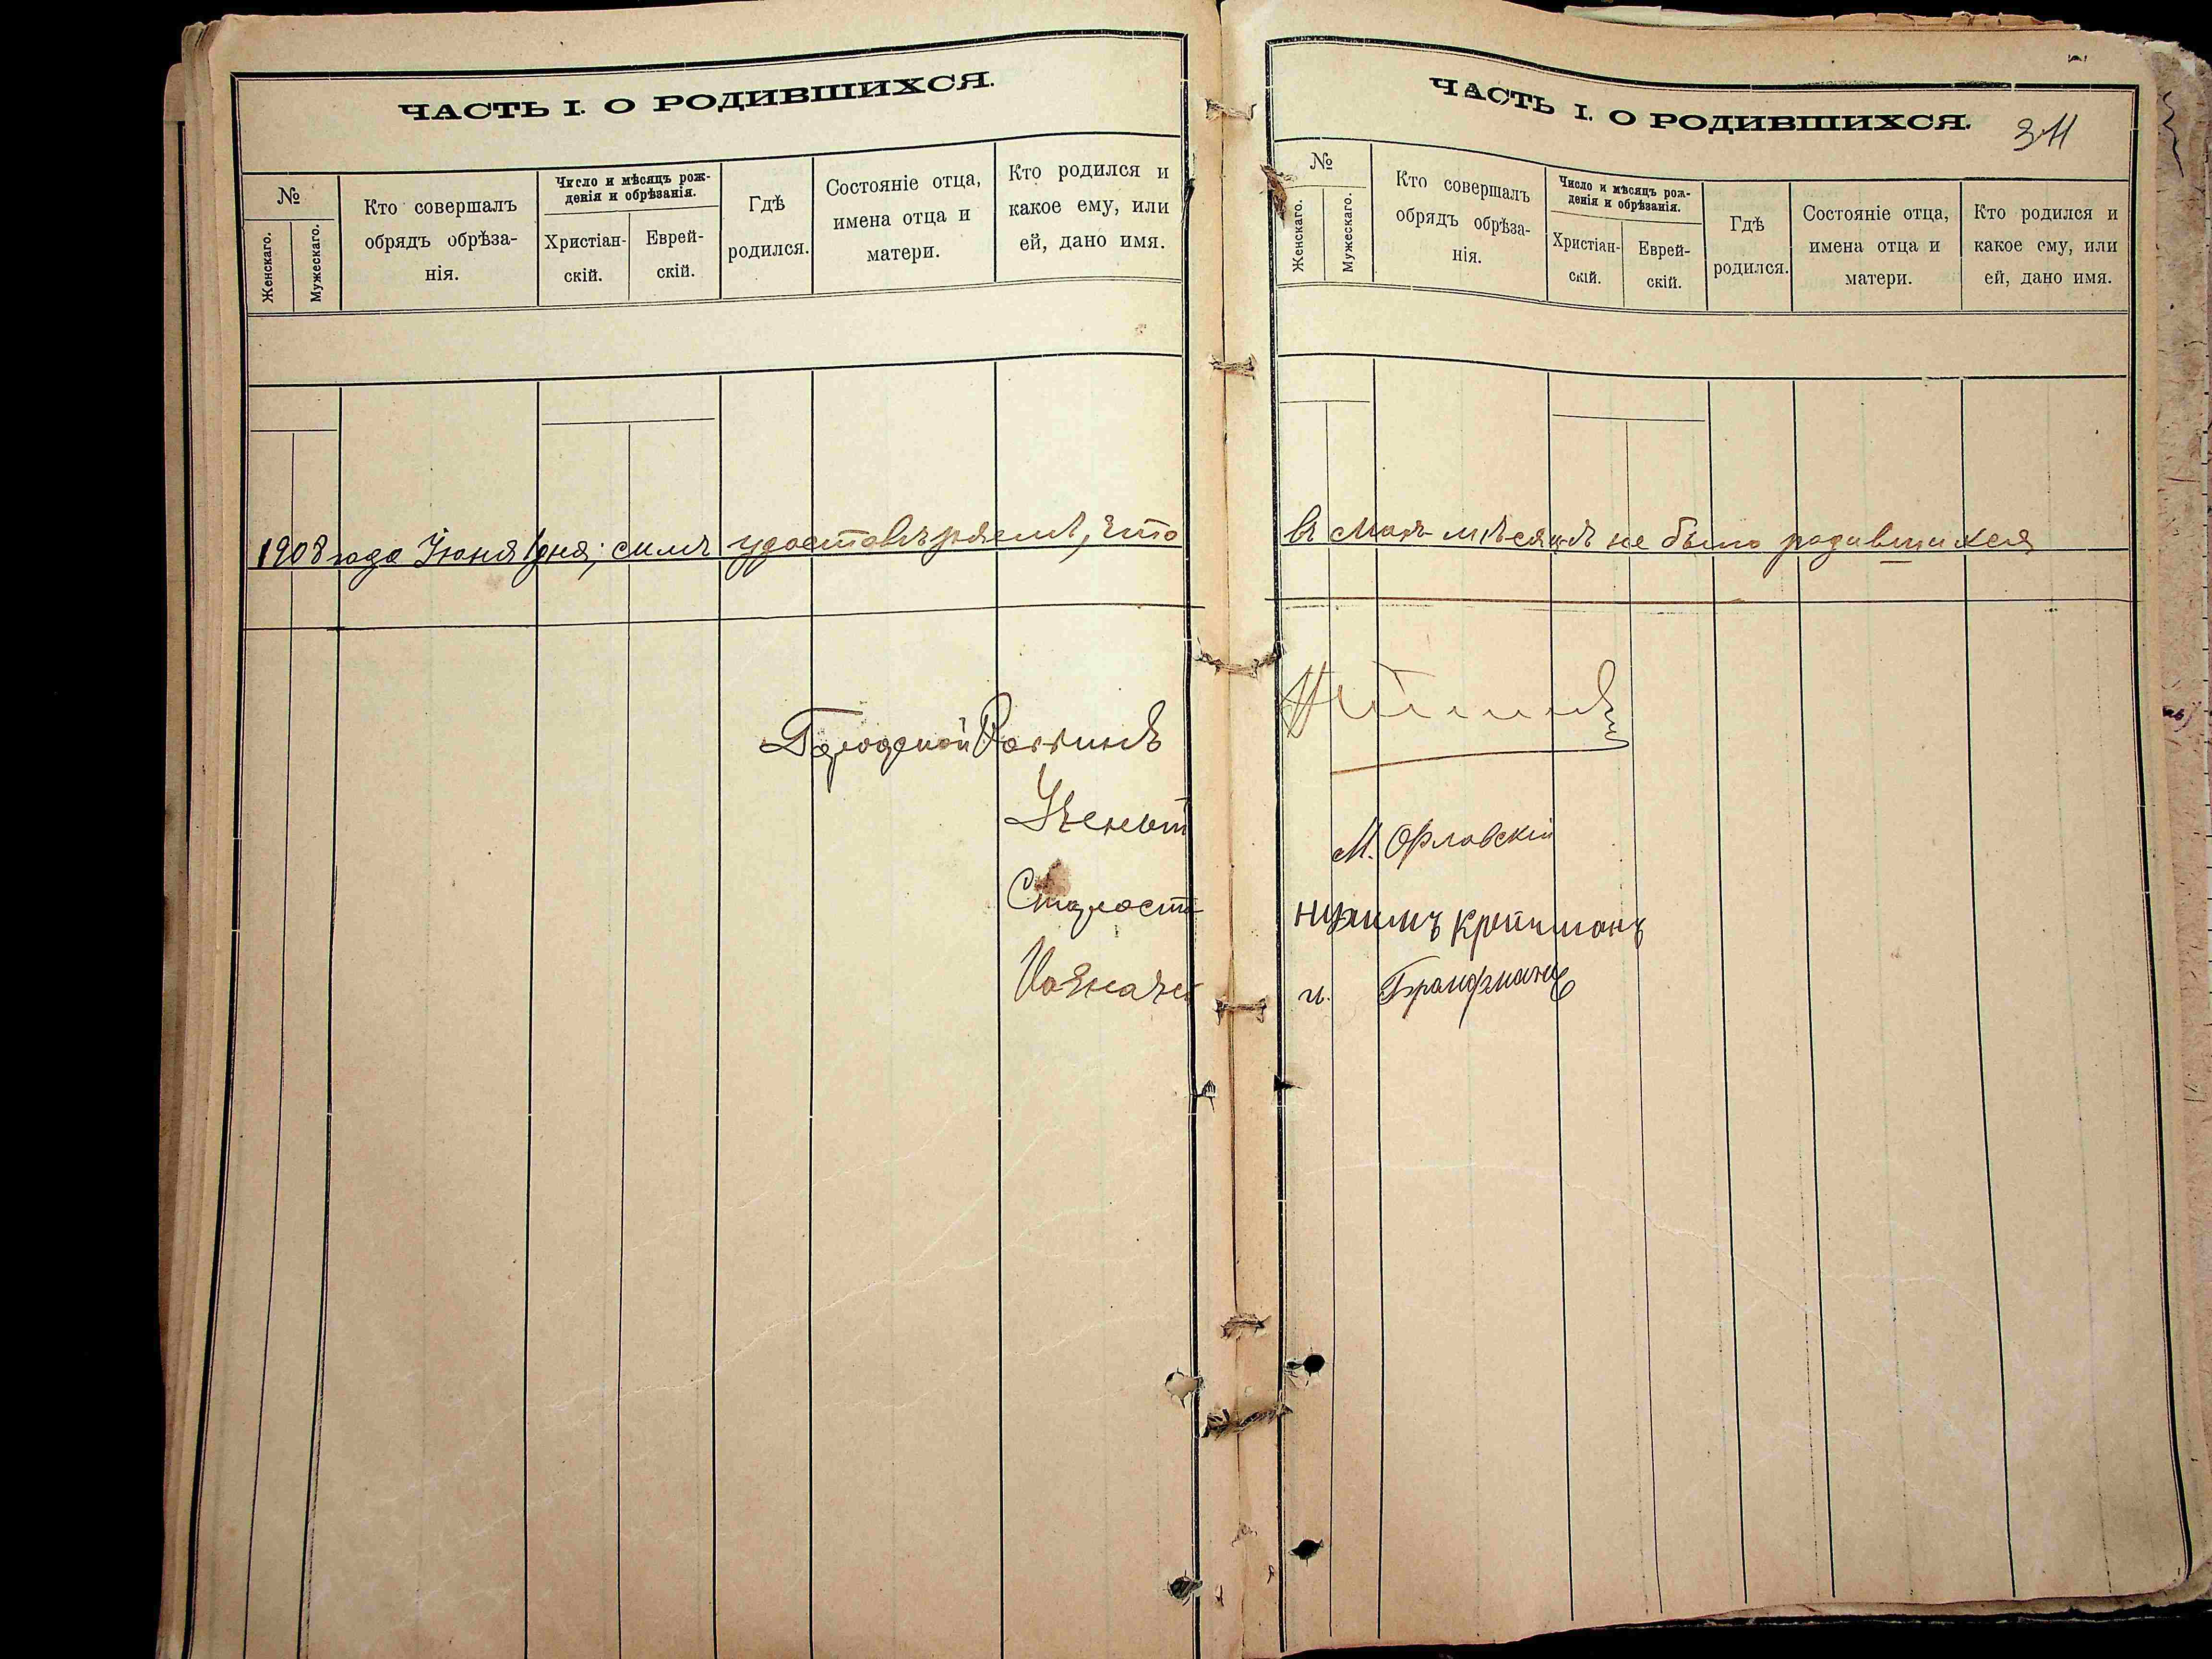 ЧАСТЬ I. О РОДИВШИХСЯ.
№
Женскаго.
Мужескаго.
Кто совершалъ
обрядъ обрѣза-
нія.
Число и мѣсяцъ рож-
денія и обрѣзанія.
Христіан-
скій.
Еврей-
скій.
Гдѣ
родился.
Состояніе отца,
имена отца и
матери.
Кто родился и
какое ему, или
ей, дано имя.
1908 года Іюня 1 дня; симъ удостовѣряемъ, что
Городской Раввинъ
Ученый
Староста
Казначей
ЧАСТЬ I. О РОДИВШИХСЯ.
№
Женскаго.
Мужескаго.
Кто совершалъ
обрядъ обрѣза-
нія.
Число и мѣсяцъ рож-
денія и обрѣзанія.
Христіан-
скій.
Еврей-
скій.
Гдѣ
родился.
Состояніе отца,
имена отца и
матери.
Кто родился и
какое ему, или
ей, дано имя.
въ Маѣ мѣсяцѣ не было родившихся
М. Орловскій
Нухимъ Крейчманъ
И. Брайфманъ